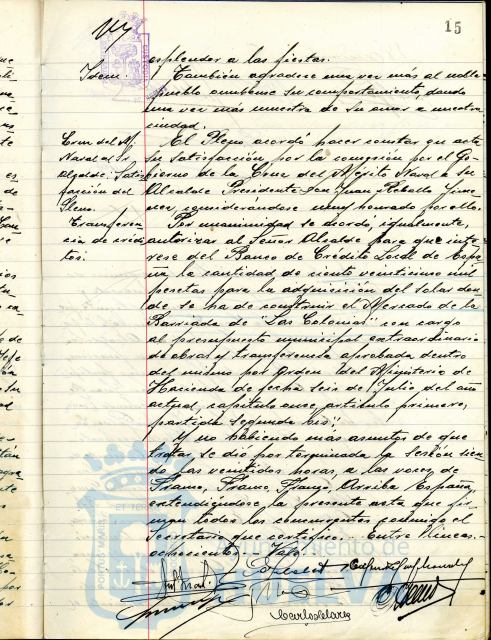 15
esplendor a las fiestas.
Idem.
También agradece una vez más al noble
pueblo onubense su comportamiento, dando
una vez más muestra de su amor a nuestra
ciudad.
Cruz del M.
Naval al Sr.
Alcalde: Satis-
facción del
Pleno.
El Pleno acordó hacer constar en acta
su satisfacción por la concesión por el Go-
bierno de la Cruz del Mérito Naval a su
Alcalde Presidente Don Juan Rebollo Jime-
nez, considerándose muy honrado por ello.
Transferen-
cia de crédi-
tos:
Por unanimidad se acordó, igualmente,
autorizar al Señor Alcalde para que inte-
rese del Banco de Crédito Local de Espa-
ña, la cantidad de ciento veinticinco mil
pesetas para la adquisición del solar don-
de se ha de construir el Mercado de la
Barriada de "Las Colonias" con cargo
al presupuesto municipal extraordinario
de obras y transferencia aprobada dentro
del mismo por Orden del Ministerio de
Hacienda de fecha seis de Julio del año
actual, capítulo once, artículo primero,
partida segunda bis".
Y no habiendo más asuntos de que
tratar, se dió por terminada la sesión sien-
do las veintidos horas, a las voces de
Franco, Franco, Franco, Arriba España,
extendiéndose la presente acta que fir-
man todos los concurrentes conmigo el
Secretario que certifico. Entre lineas.
Vale.
Ayuntamiento de
HUELVA